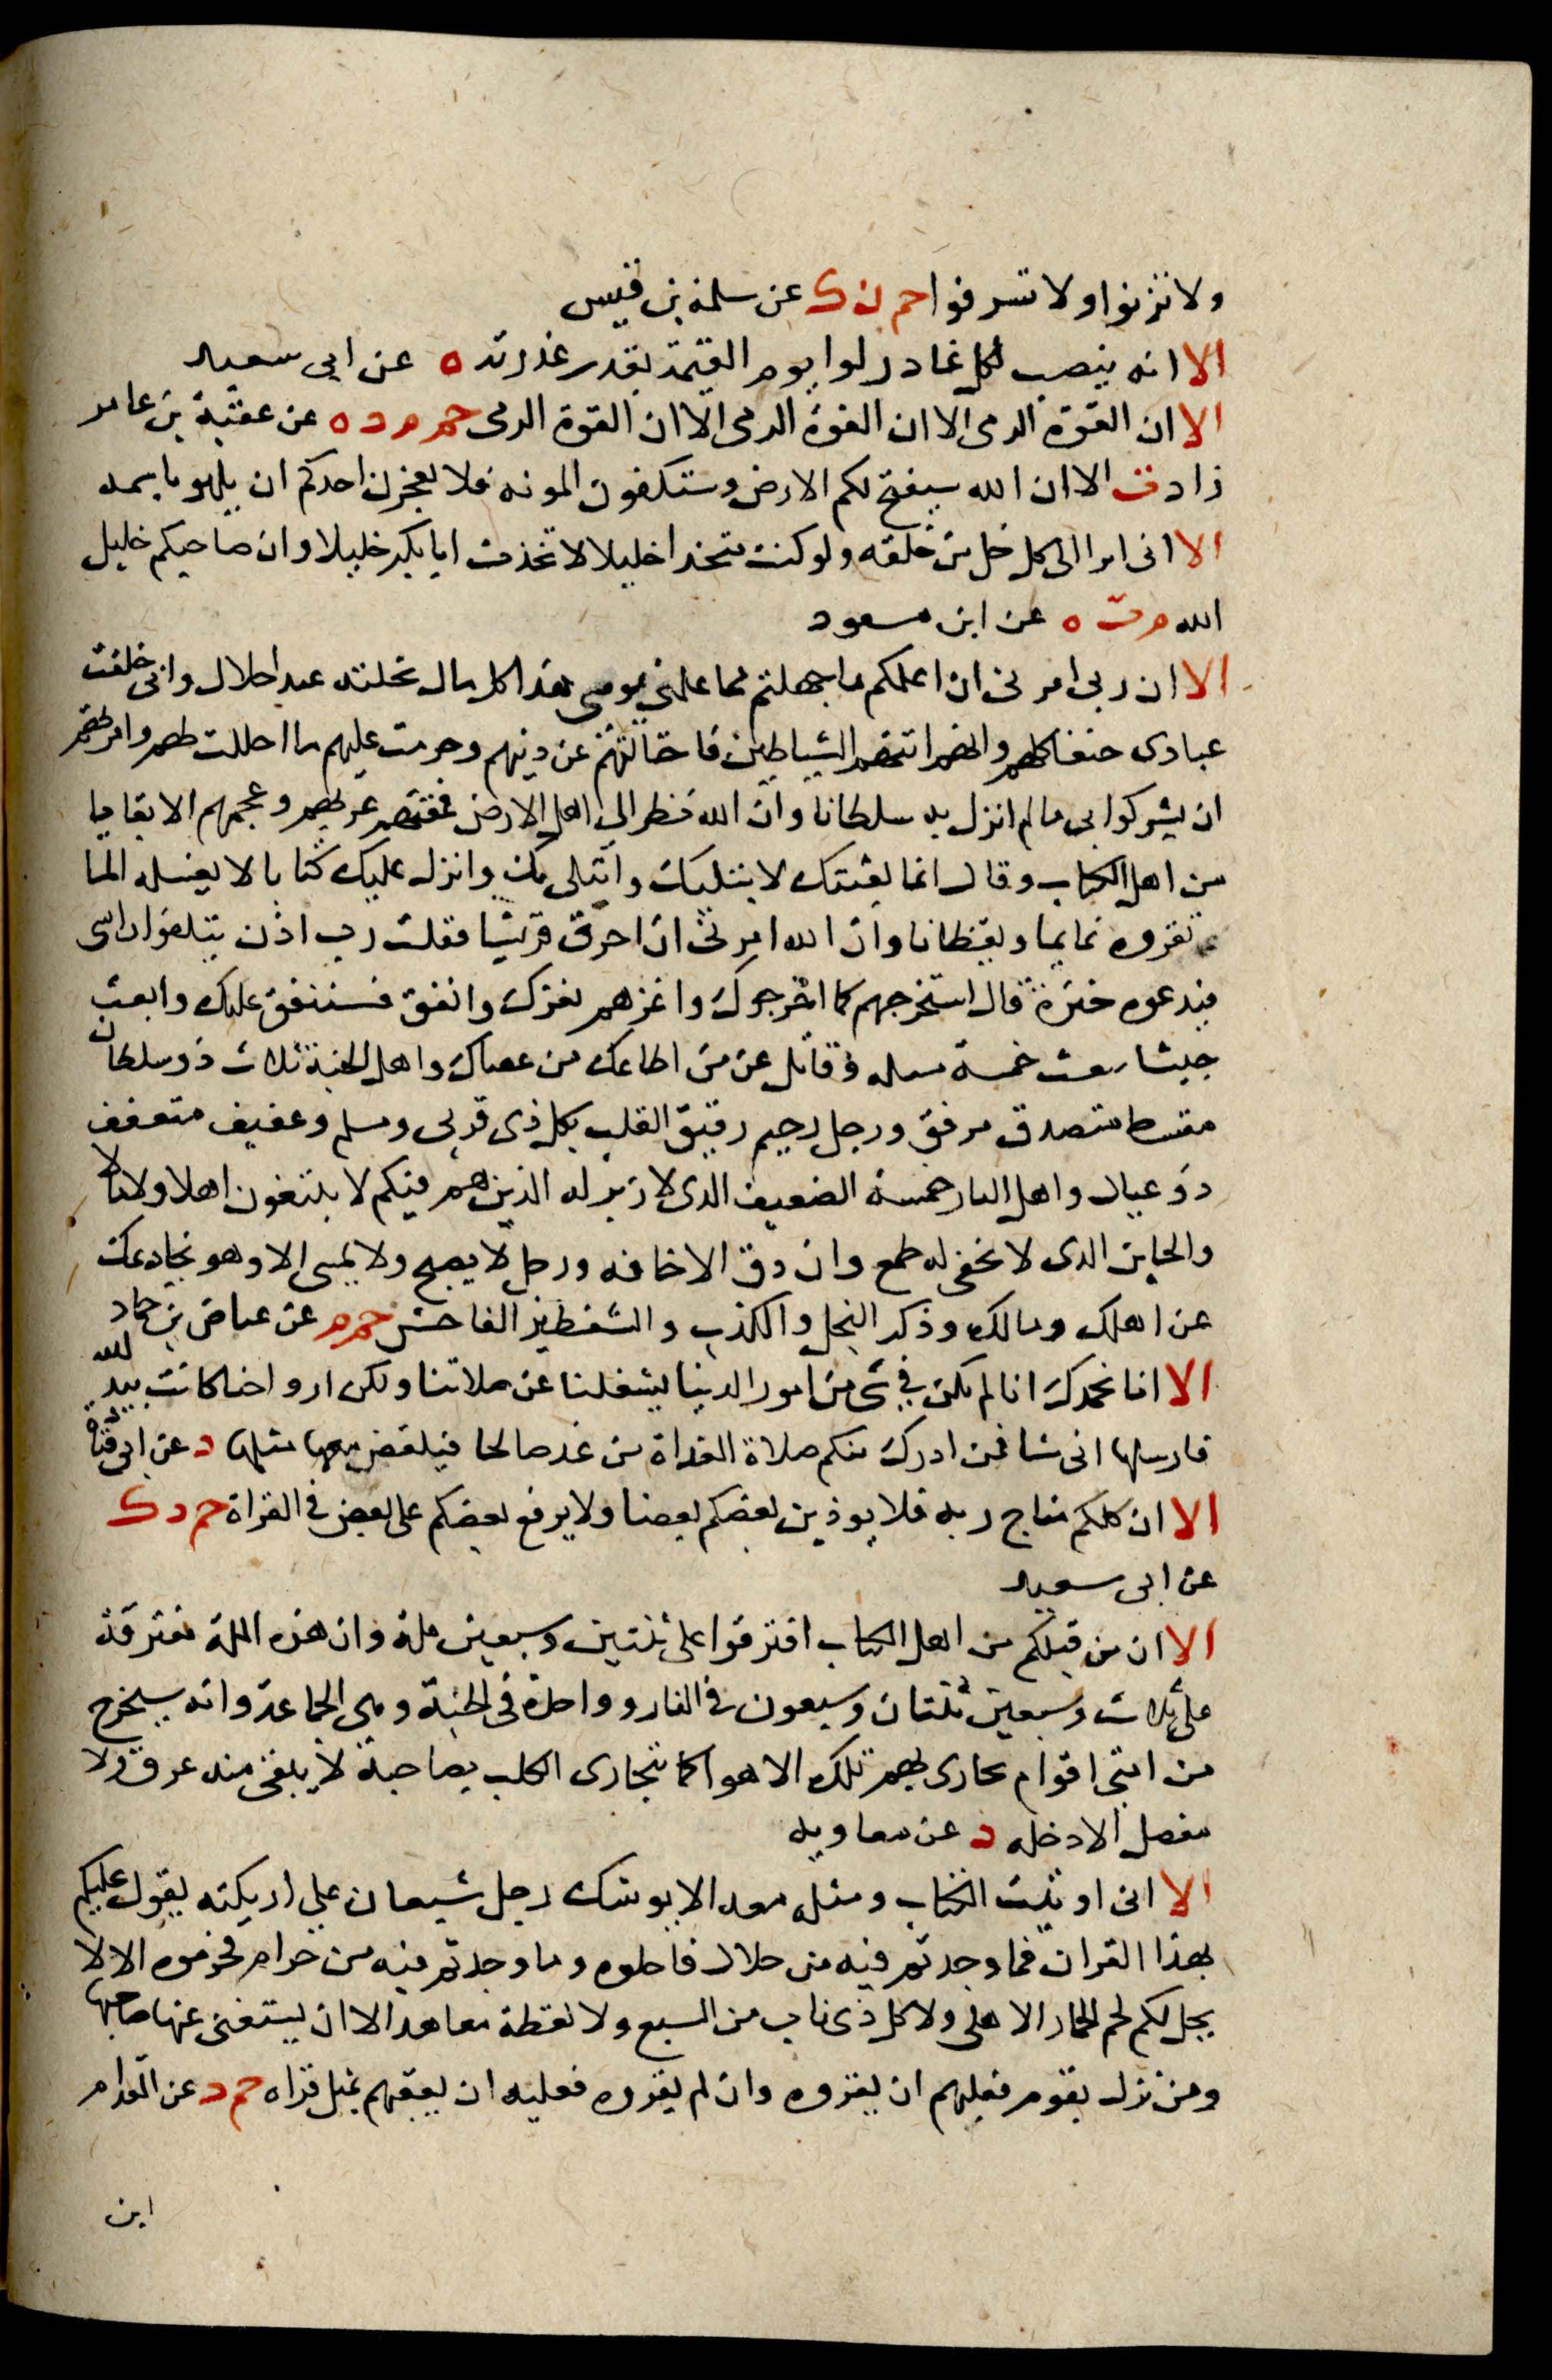 ولا تزنوا ولا تسرفوا حم ن ك عن سلمة بن قيس
الا انه ينصب لكل غادر لوا يوم القيمة بقدر غدرته ه عن ابي سعيد
الا ان القوة الرمى الا ان القوة الرمى الا ان القوة الرمى حم م د ه عن عقبة بن عامر
زاد ت الا ان الله سيفتح لكم الارض وستكفون المونه فلا يعجزن احدكم ان يلهو باسهمه
الا انى ابرا الى كل خل من خلقه ولو كنت متخذا خليلا لاتخذت ابا بكر خليلا وان صاحبكم خليل
الله م ت ه عن ابن مسعود
الا ان ربى امرنى ان اعلمكم ما جهلتم مما علمنى يومى هذا كل مال نحلته عبدا حلال وانى خلقت
عبادى حنفا كلهم وانهم اتتهم الشياطين فاجتالتهم عن دينهم وحرمت عليهم ما احللت لهم وامرتهم
ان يشركوا بى ما لم انزل به سلطانا وان الله نظر الى اهل الارض فمقتهم عربهم وعجمهم الا بقايا
من اهل الكتاب وقال انما بعثتك لابتليك وابتلى بك وانزل عليك كتابا لا يغسله الما
تقروه نايما ويقظانا وان الله امرنى ان احرق قريشا فقلت رب اذن يثلغوا راسى
فيدعوه خبزة قال استخرجهم كما اخرجوك واغزهم نغزك وانفق فسننفق عليك وابعث
جيشا نبعث خمسة مثله وقاتل عن من اطاعك من عصاك واهل الجنة ثلاث ذو سلطان
مقسط متصدق مرفق ورجل رحيم رقيق القلب بكل ذى قربى ومسلم وعفيف متعفف
ذو عيال واهل النار خمسة الضعيف الذى لا زبر له الذين هم فيكم لا يبتغون اهلا ولا مالا
والخاين الذى لا يخفى له طمع وان دق الا خافه ورجل لا يصبح ولا يمسى الا وهو يخادعك
عن اهلك ومالك وذكر البخل والكذب والشنظير الفاحش حم م عن عياض بن حماد
الا انا نحمدك انا لم نكن فى شى من امور الدنيا يشغلنا عن صلاتنا ولكن ارواحنا كانت بيد الله
فارسلها انى شا فمن ادرك منكم صلاة الغداة من غد صالحا فليقض معها مثلها د عن ابى قتادة
الا ان كلكم مناج ربه فلا يوذين بعضكم بعضا ولا يرفع بعضكم على بعض فى القراة حم د ك
عن ابى سعيد
الا ان من قبلكم من اهل الكتاب افترقوا على ثنتين وسبعين ملة وان هذه الملة تفترقة
على ثلاث وسبعين ثنتان وسبعون فى النار وواحدة فى الجنة وهى الجماعة وانه سيخرج
من امتى اقوام تجارى بهم تلك الاهوا كما تتجارى الكلب بصاحبه لا يبقى منه عرق ولا
مفصل الا دخله د عن معاويه
الا انى اوتيت الكتاب ومثله معه الا يوشك رجل شبعان على اريكته يقول عليكم
بهذا القران فما وجدتم فيه من حلال فاحلوه وما وجدتم فيه من حرام فحرموه الا لا
يحل لكم لحم الحمار الاهلى ولا كل ذى ناب من السبع ولا لقطة معاهد الا ان يستغنى عنها صاحبها
ومن نزل بقوم فعليهم ان يقروه وان لم يقروه فعليه ان يعقبهم بمثل قراه حم د عن المقدام
ابن